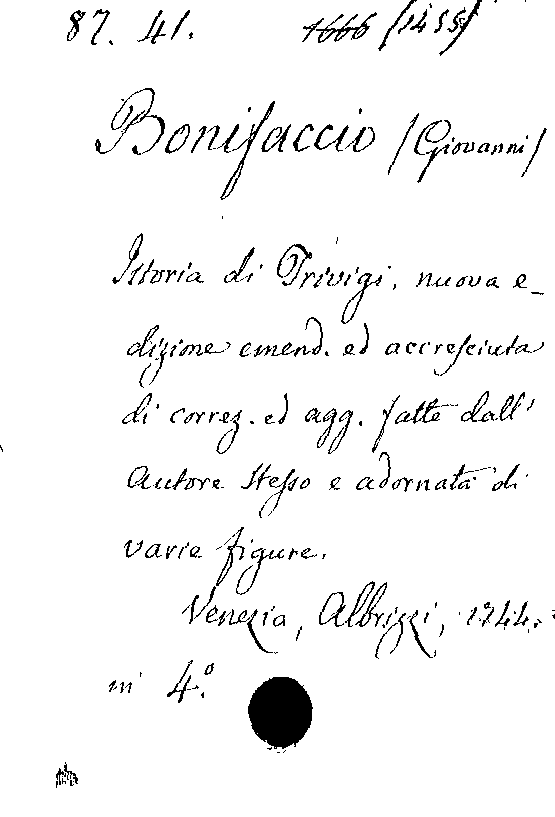 87. 41. 1666 (1455)
Bonifaccio (Giovanni)
Istoria di Trivigi, nuova e_
dizione emend. ed accresciuta
di correz. ed agg. fatte dall'
Autore stesso e adornata di
varie figure.
Venezia, Albrizzi, 1744.
in 4.º